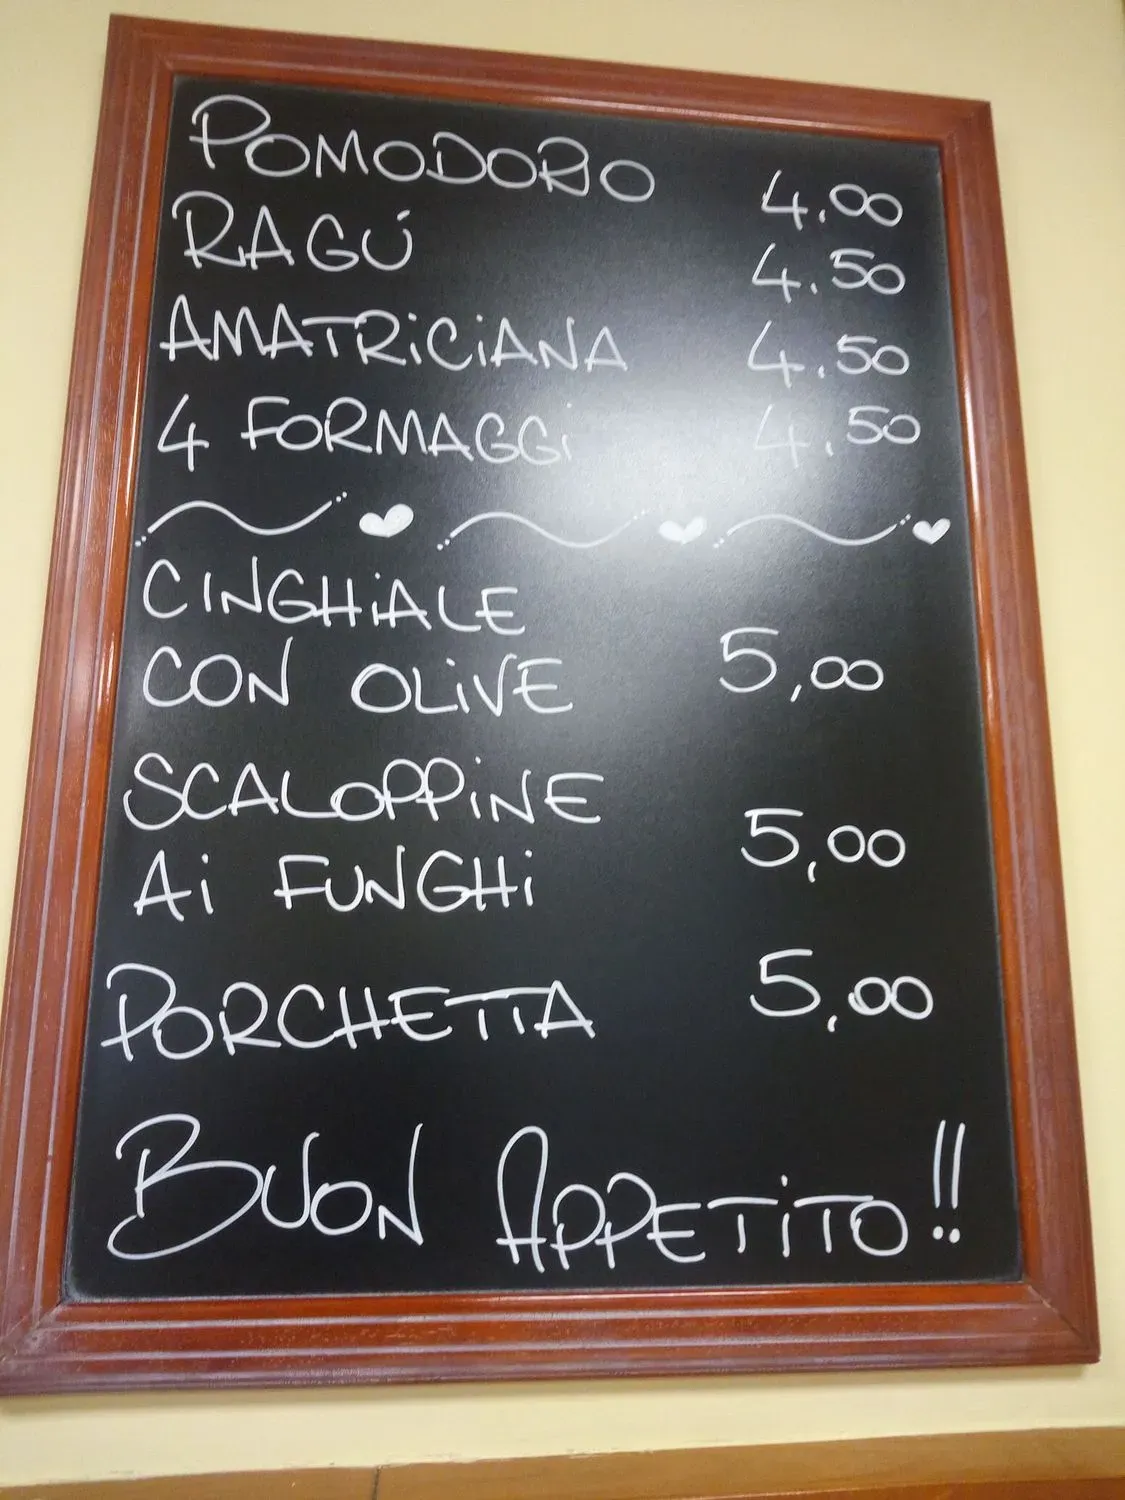 POMODORO 4.00
RAGÚ 4.50
AMATRiCiANA 4.50
4 FORMAGGi 4.50
CINGHiALE
CON OLiVE 5,00
SCALOPPiNE
Ai FUNGHi 5,00
PORCHETTA 5,00
BUON APPETiTO!!